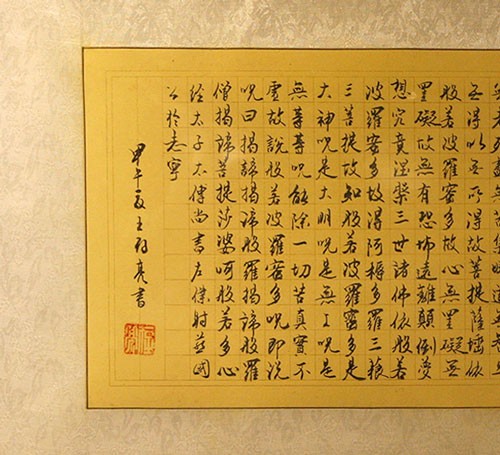 無老死盡無苦集滅道無智亦
無得以無所得故菩提薩埵依
般若波羅蜜多故心無罣礙無
罣礙故無有恐怖遠離顛倒夢
想究竟涅槃三世諸佛依般若
波羅蜜多故得阿耨多羅三藐
三菩提故知般若波羅蜜多是
大神呪是大明呪是無上呪是
無等等呪能除一切苦真實不
虛故說般若波羅蜜多呪即說
呪曰揭諦揭諦般羅揭諦般羅
僧揭諦菩提莎婆呵般若多心
經太子太傅尚書左僕射燕國
公於志寧
甲午夏王亮書